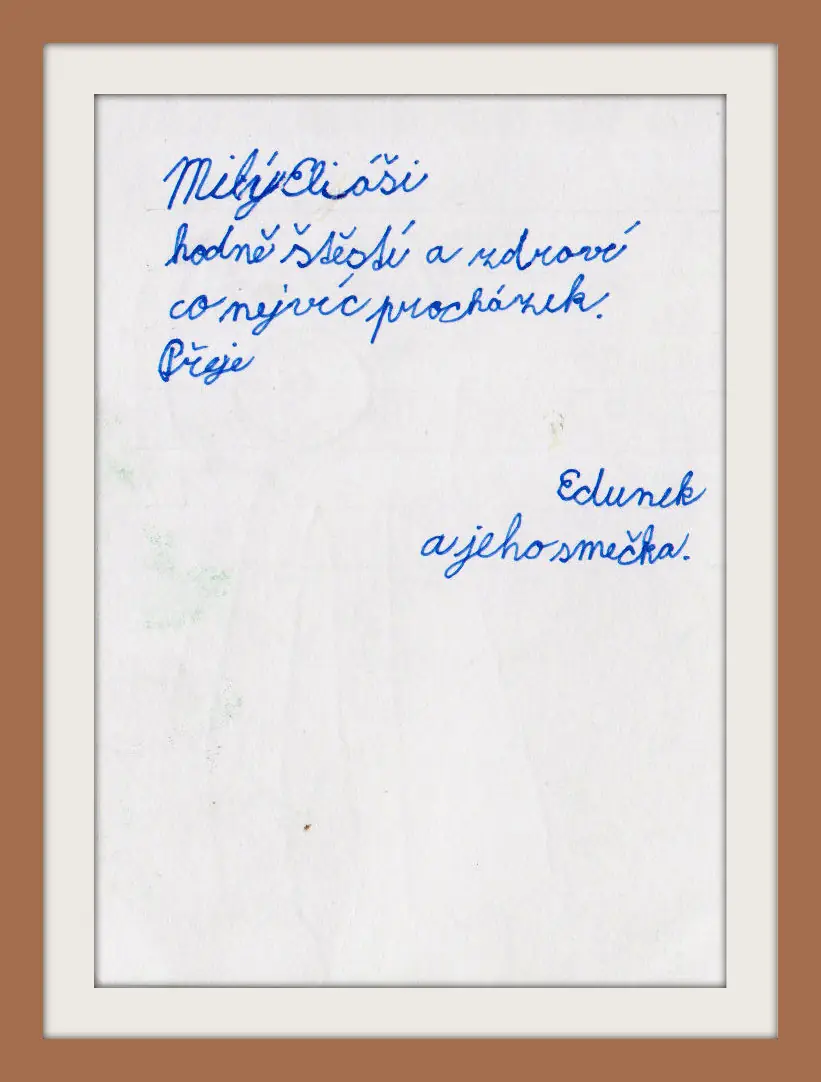 Milý Eliáši
hodně štěstí a zdroví
co nejvíc procházek.
Přeje
Edunek
a jeho smečka.